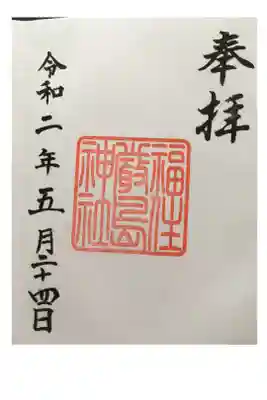 奉拝
福住
厳島
神社
令和二年五月二十四日